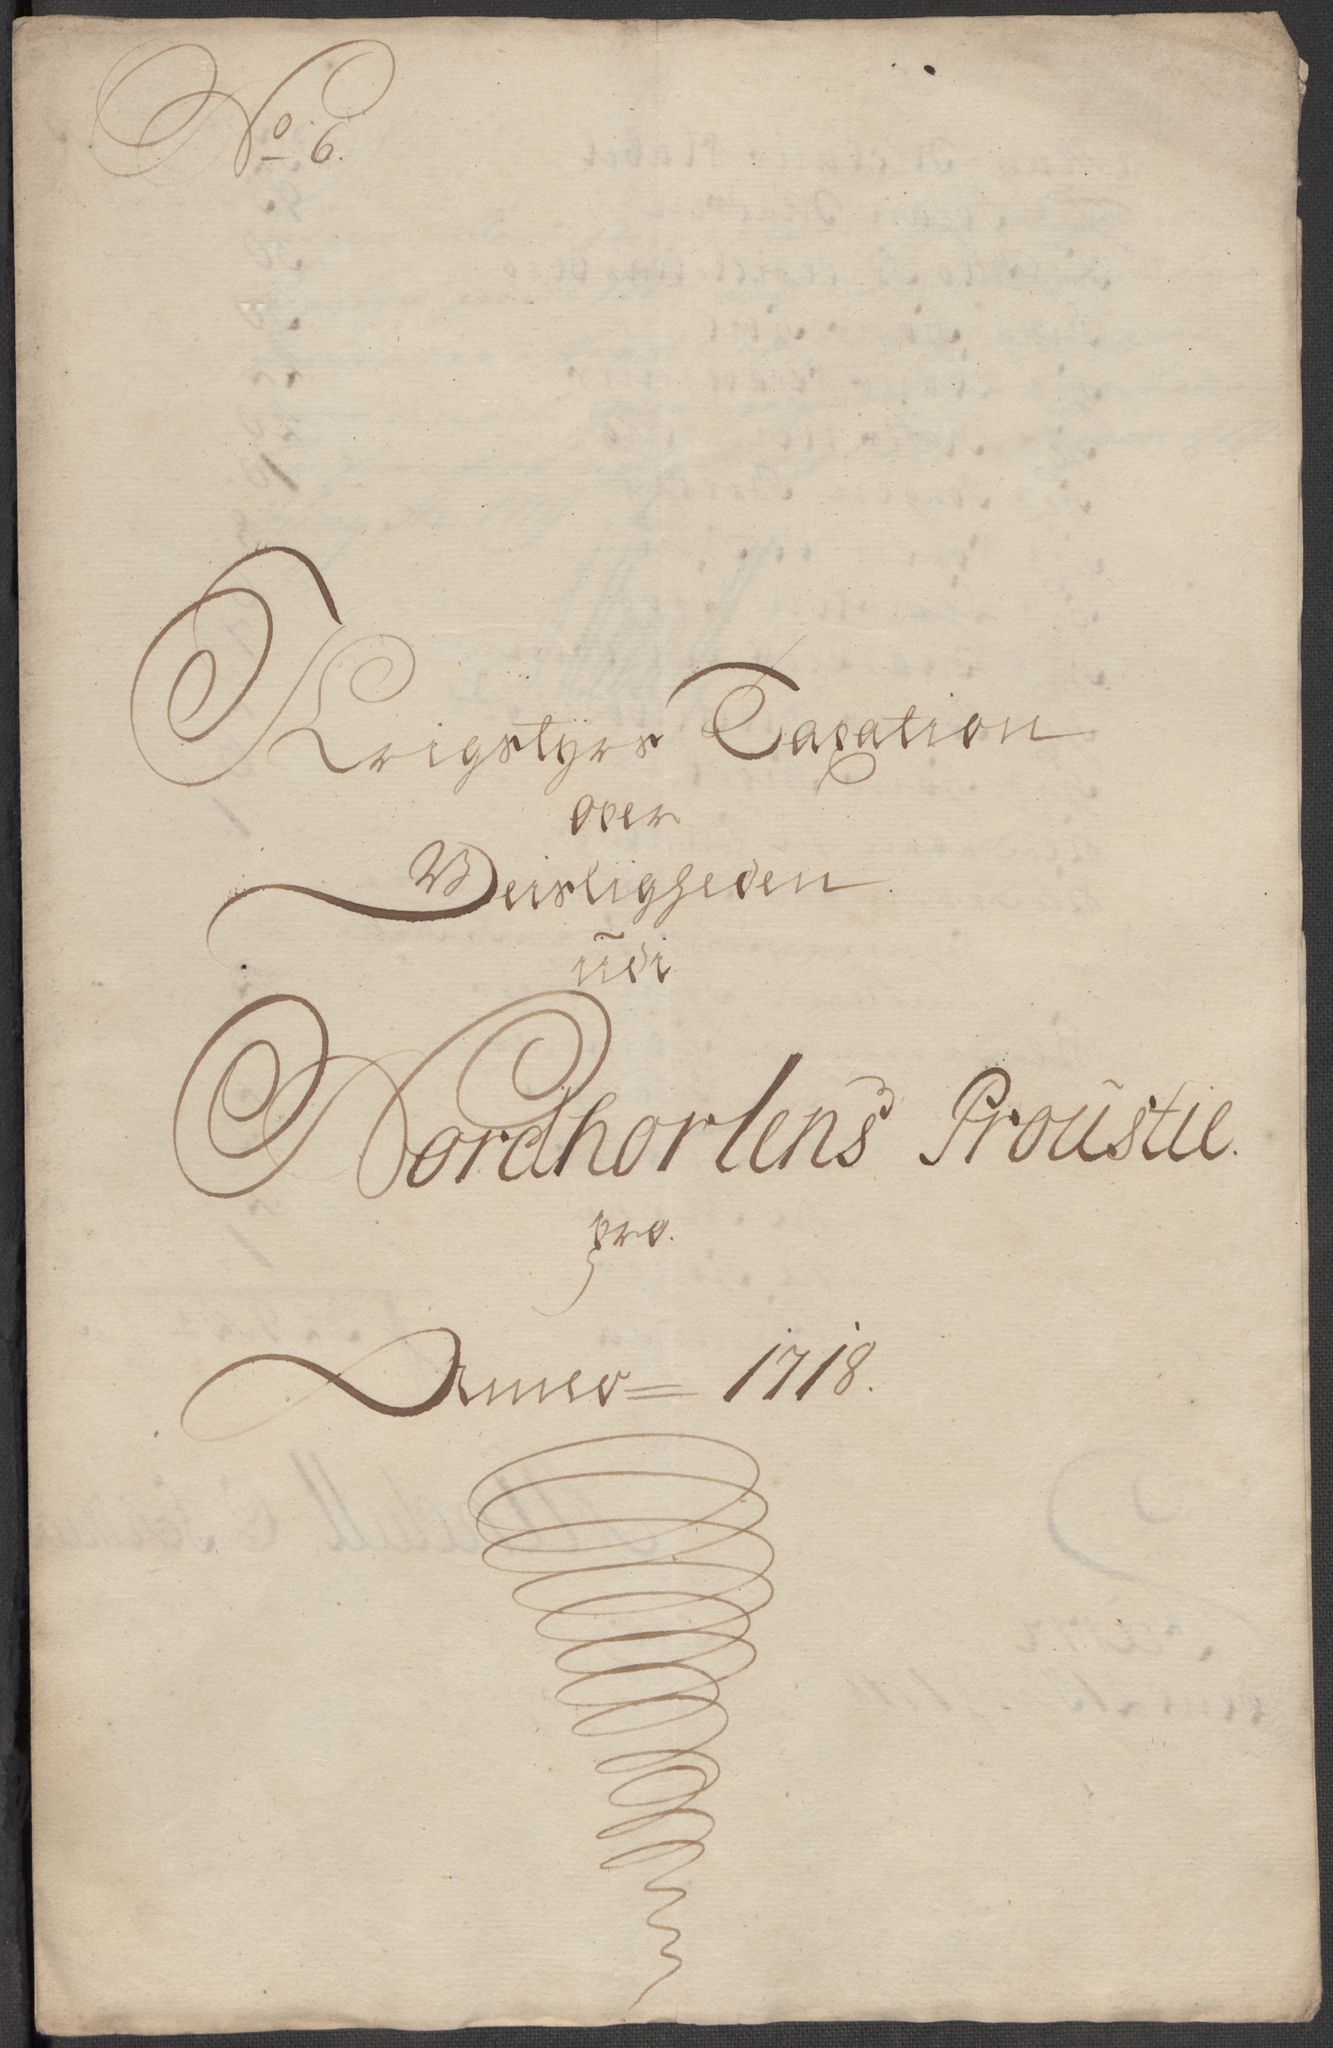 No 6.
Krigstyrs Taxation
over
Geistligheden
udi
Nordhorlens Proustie.
pro.
Anno = 1718.